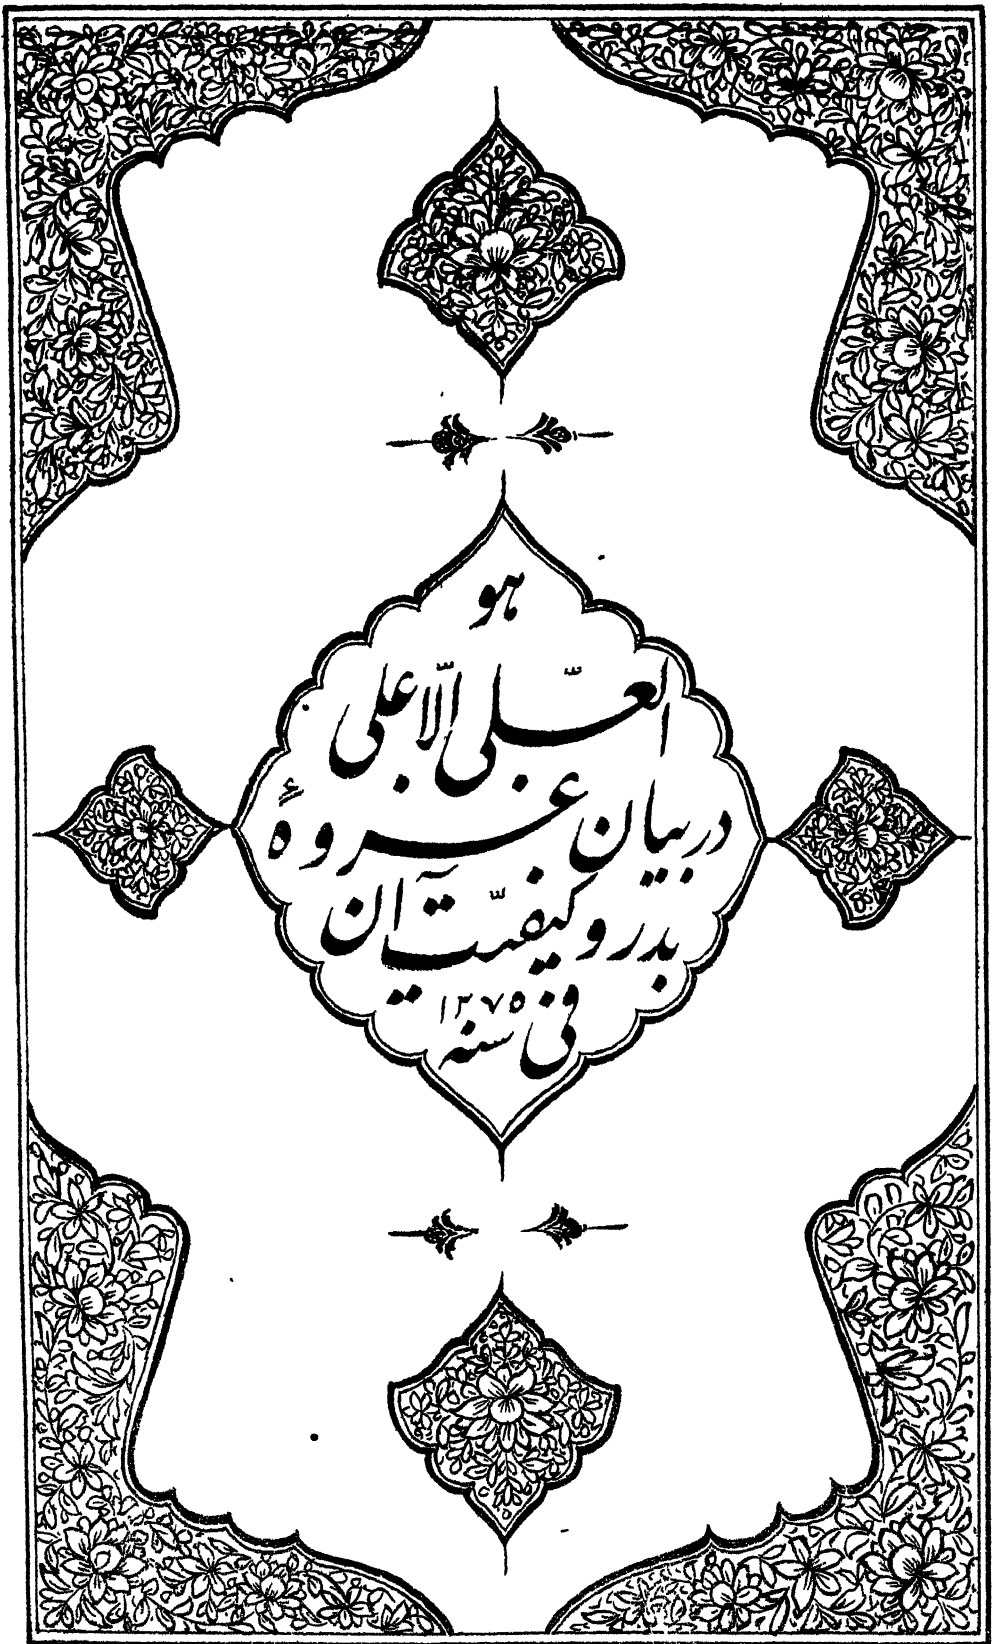 هو
العلّی الّا علی
در بیان غزوهٔ
بدر و کیفیّت آن
فی سنه ۱۲۷۵